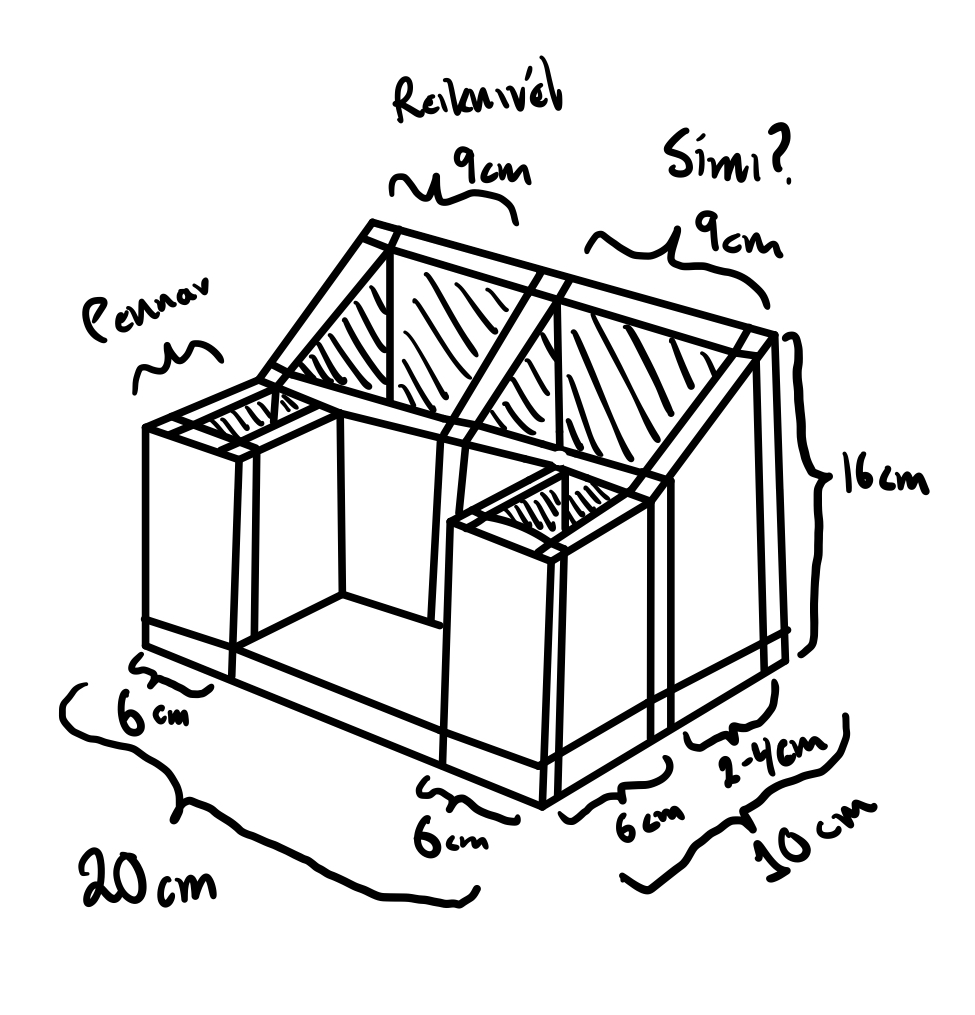 Reiknivél
9cm
Sími?
9cm
Pennar
16cm
6cm
2-4cm
6cm
6cm
10cm
20cm